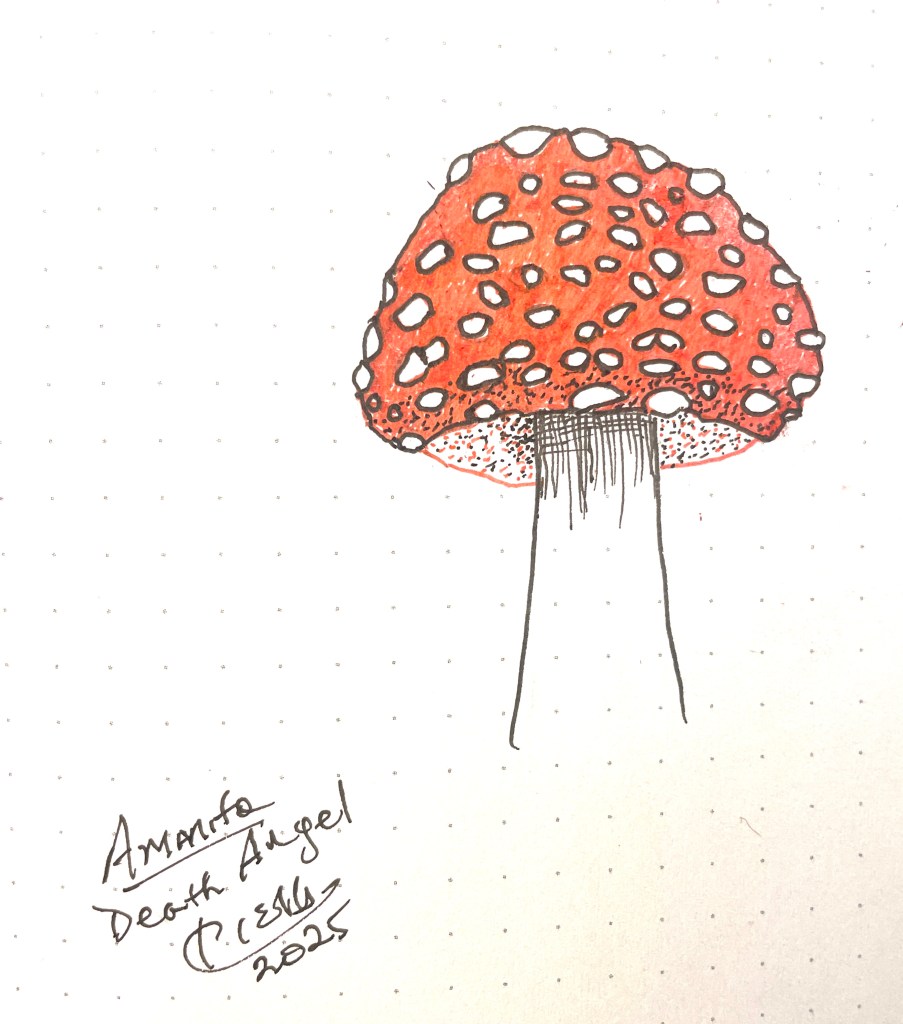 Amanita
Death Angel
2025